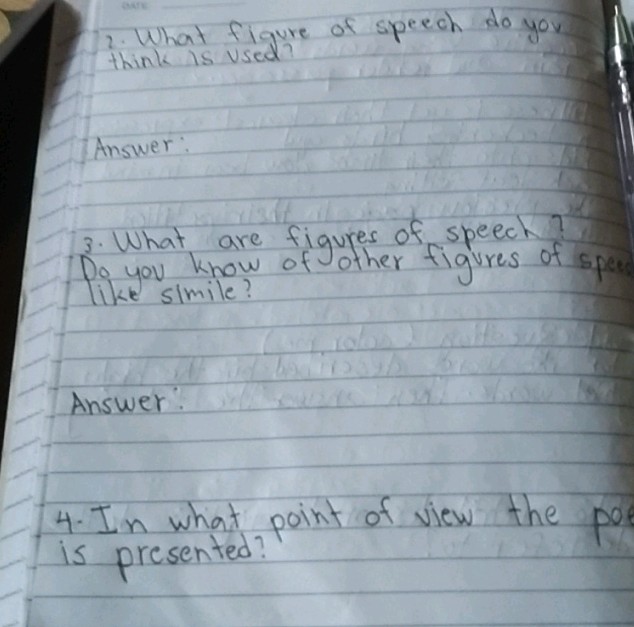 DATE
2. What figure of speech do you
think is used?
Answer:
3. What are figures of speech?
Do you know of other figures of
like simile?
Answer:
4. In what point of view the
is presented?